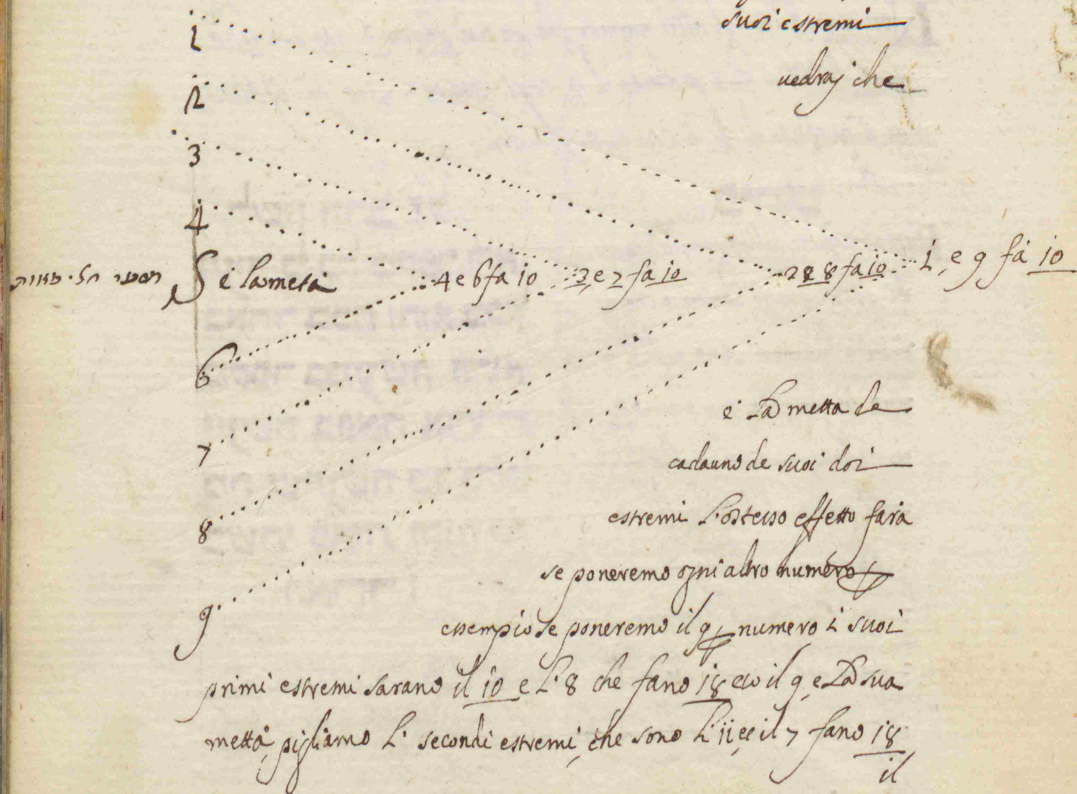 suoi estremi
vedraj che
1
2
3
4
5 è la metà
4 e 6 fa 10
3 e 7 fa 10
2 e 8 fa 10
1 e 9 fa 10
6
7
8
9
è la metta de
cadauno de suoi doi
estremi l'istesso effetto fara
se poneremo ogni altro numero p
essempio se poneremo il 9 p numero i suoi
primi estremi sarano il 10 e l'8 che fano 18 e il 9 e la sua
mettà, pigliamo li secondi estremi che sono l'11 e il 7 fano 18
il